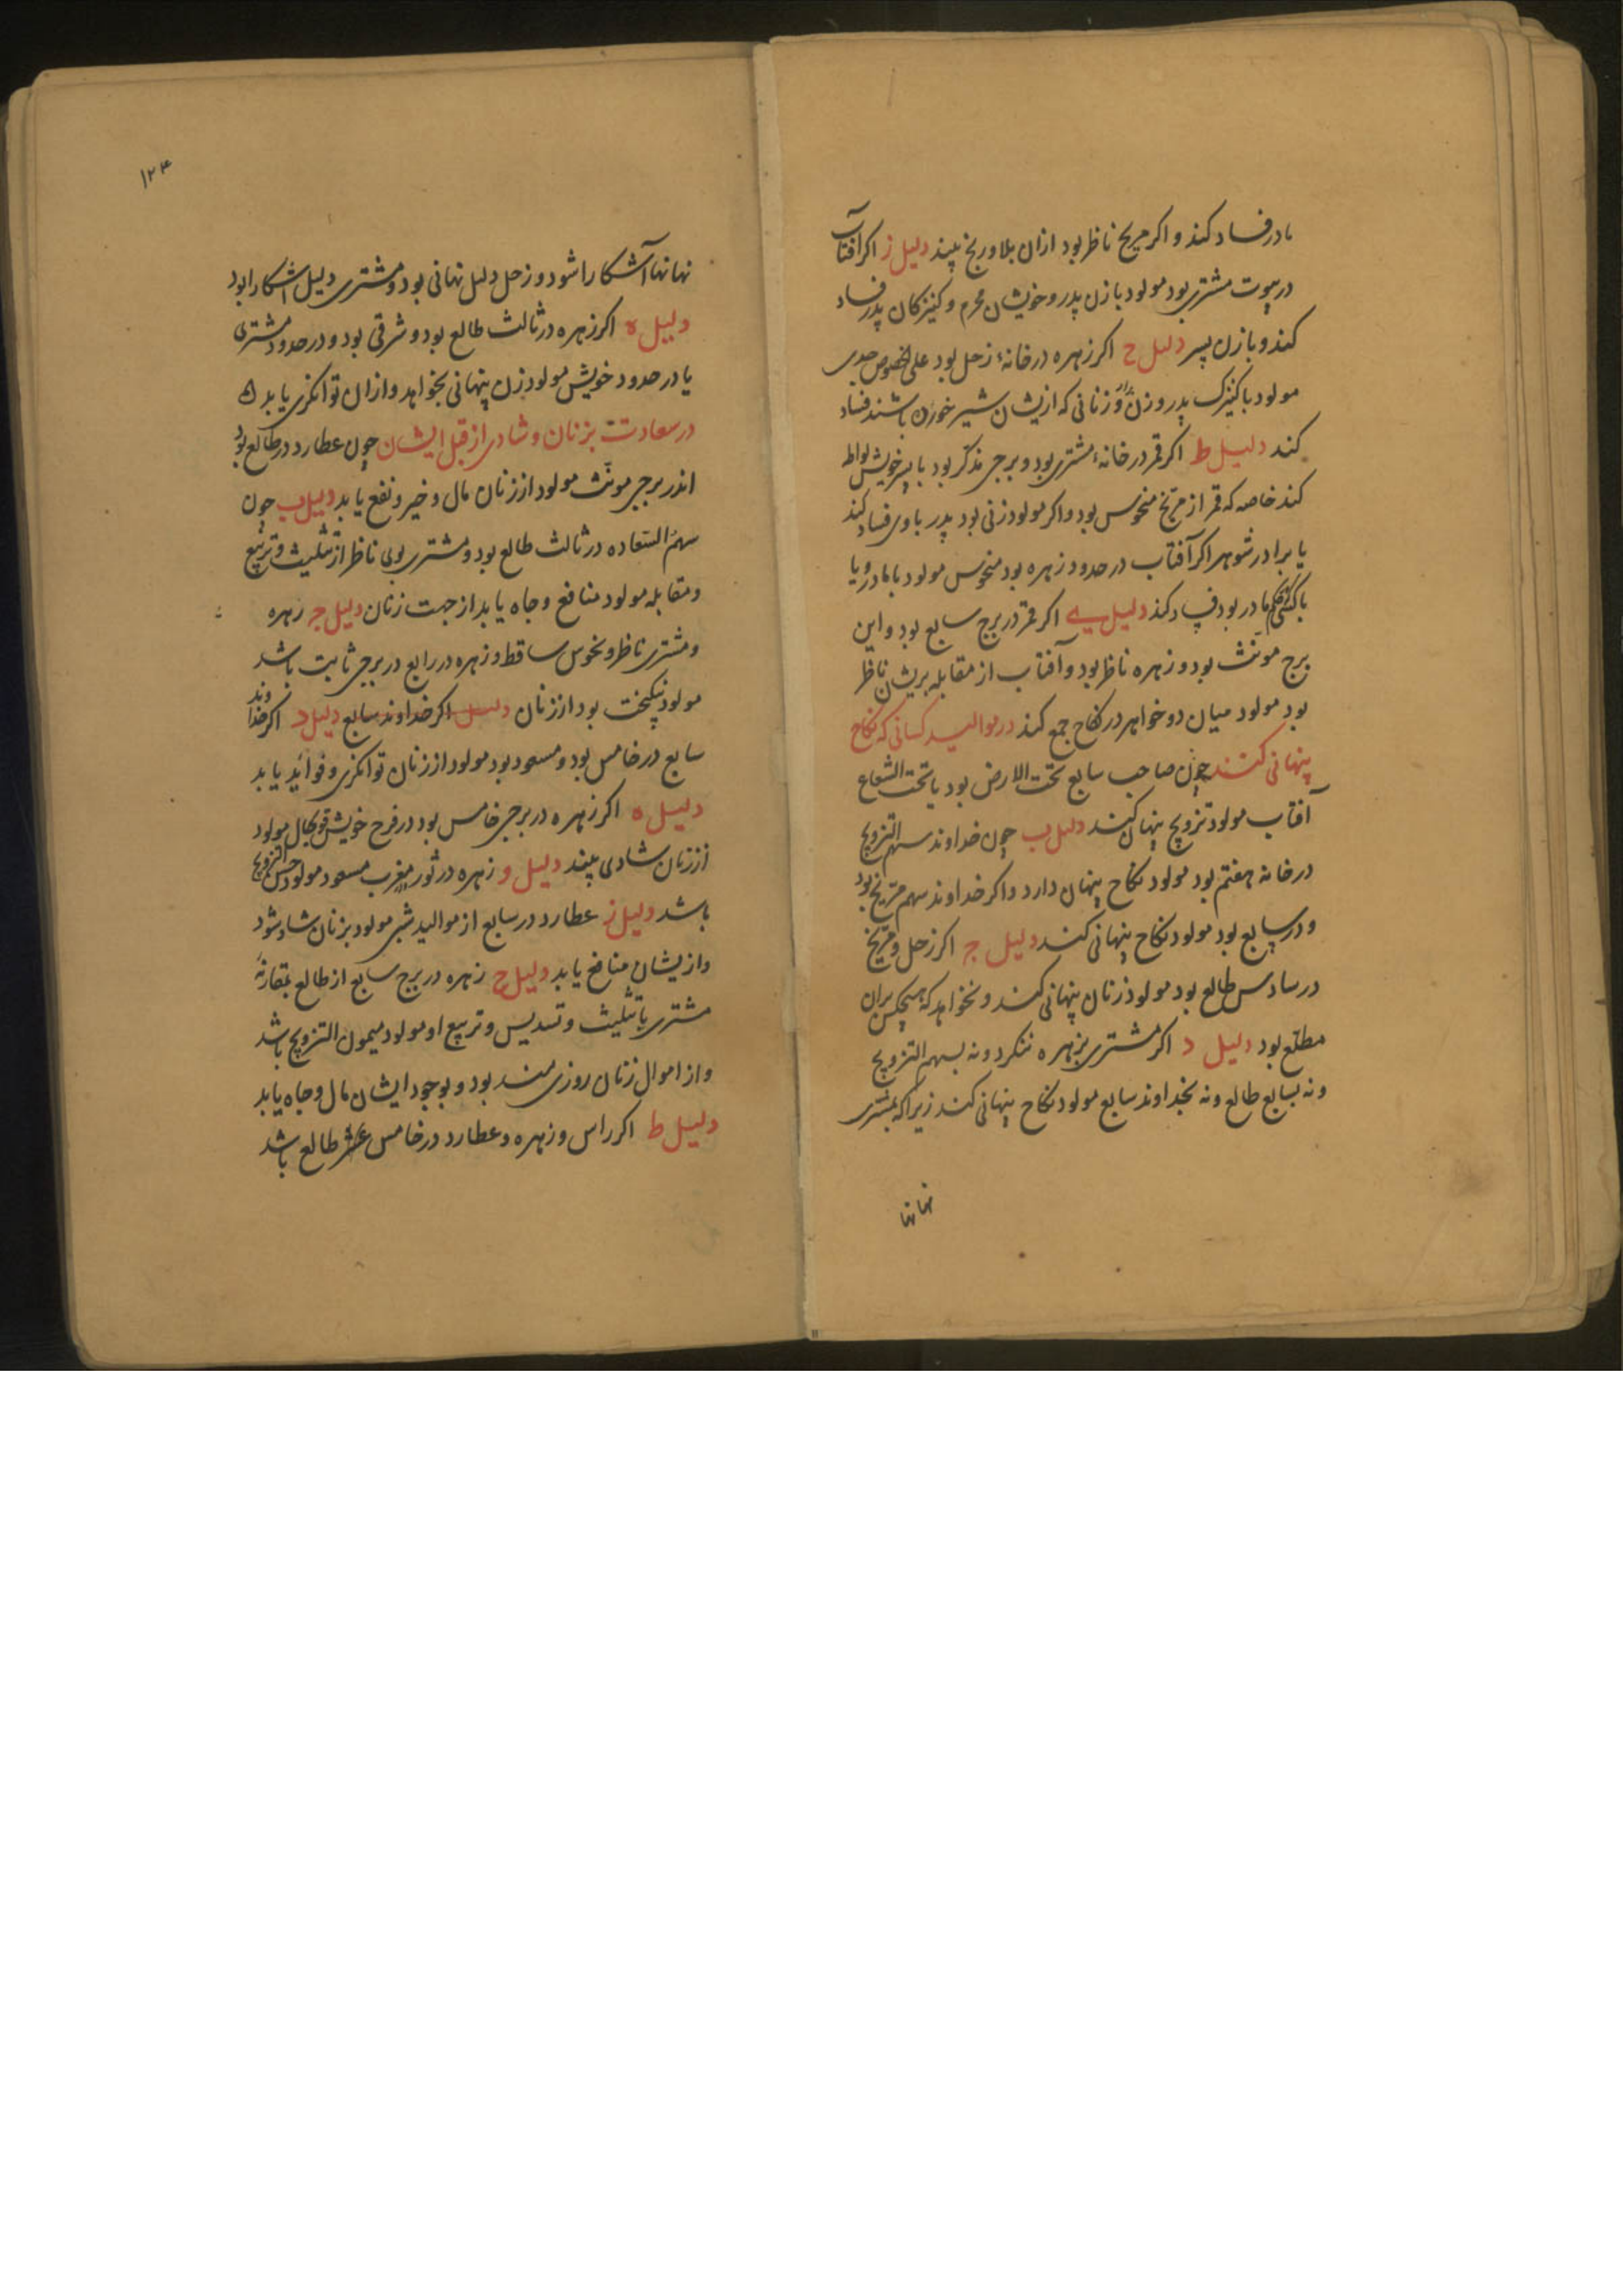 مادر فساد کند و اکر مریخ ناظر بود ازان بلا و رنج بیند دلیل ز اکر آفتاب
در بیوت مشتری بود مولود با زن پدر و خویشان محرم و کنیزکان پدر فساد
کند و با زن پسر دلیل ح اکر زهره در خانهٔ زحل بود علی الخصوص جدی
مولود با کنیزک پدر و زن و زنانی که ازیشان شیر خورن باشند فساد
کند دلیل ط اکر قمر در خانهٔ مشتری بود و برجی مذکر بود با پسر خویش لواط
کند خاصه که قمر از مریخ منحوس بود و اکر مولود زنی بود پدر با وی فساد کند
یا برادر شوهر اکر آفتاب در حدود زهره بود منحوس مولود با مادر و یا
با کسی مادر بود فساد کند دلیل ی اکر قمر در برج سابع بود و این
برج مونث بود و زهره ناظر بود و آفتاب از مقابله بریشان ناظر
بود مولود میان دو خواهر در نکاح جمع کند در موالید کسانی که نکاح
پنهانی کنند چون صاحب سابع تحت الارض بود یا تحت الشعاع
آفتاب مولود تزویج پنهان کند دلیل ب چون خداوند سهم التزویج
در خانه هفتم بود مولود نکاح پنهان دارد و اکر خداوند سهم مریخ بود
و در سابع بود مولود نکاح پنهانی کند دلیل ج اکر زحل و مریخ
در سادس طالع بود مولود زنان پنهانی کند و نخواهد که هیچکس بران
مطلع بود دلیل د اکر مشتری بزهره ننکرد و نه بسهم التزویج
و نه بسابع طالع و نه بخداوند سابع مولود نکاح پنهانی کند زیرا که بمشتری
نهانها
۱۲۴
نهانها آشکارا شود و زحل دلیل نهانی بود و مشتری دلیل اشکارا بود
دلیل ه اکر زهره در ثالث طالع بود و شرقی بود و در حدود مشتری
یا در حدود خویش مولود زن پنهانی بخواهد و ازان توانکری یابد
در سعادت بزنان و شادی از قبل ایشان چون عطارد در طالع بود
اندر برجی مونث مولود از زنان مال و خیر و نفع یابد دلیل ب چون
سهم السعاده در ثالث طالع بود و مشتری بوی ناظر از تثلیث و تربیع
و مقابله مولود منافع و جاه یابد از جهت زنان دلیل ج زهره
و مشتری ناظر و نحوس ساقط و زهره در رابع در برجی ثابت باشد
مولود نیکبخت بود از زنان دلیل اکر خداوند سابع دلیل د اکر خداوند
سابع در خامس بود و مسعود بود مولود از زنان توانکری و فوائد یابد
دلیل ه اکر زهره در برجی خامس بود در فرح خویش قویحال مولود
از زنان شادی بیند دلیل و زهره در ثور مغرب مسعود مولود حسن التزویج
باشد دلیل ز عطارد در سابع از موالید شبی مولود بزنان شاد شود
و ازیشان منافع یابد دلیل ح زهره در برج سابع از طالع بمقارنهٔ
مشتری یا تثلیث و تسدیس و تربیع او مولود میمون التزویج باشد
و از اموال زنان روزی مند بود و بوجود ایشان مال و جاه یابد
دلیل ط اکر راس و زهره و عطارد در خامس عشر طالع باشد